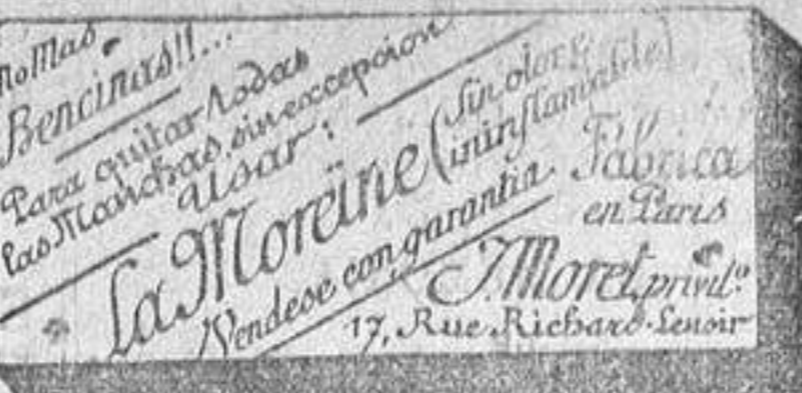 No Mas
Bencinas!!...
Para quitar todas
las Manchas, sin excepcion
Usar:
La Moreïne
(Sin olor é
ininflamable)
Vendese con garantia
Fábrica
en Paris
J. Moret, privil.º
17, Rue Richard-Lenoir